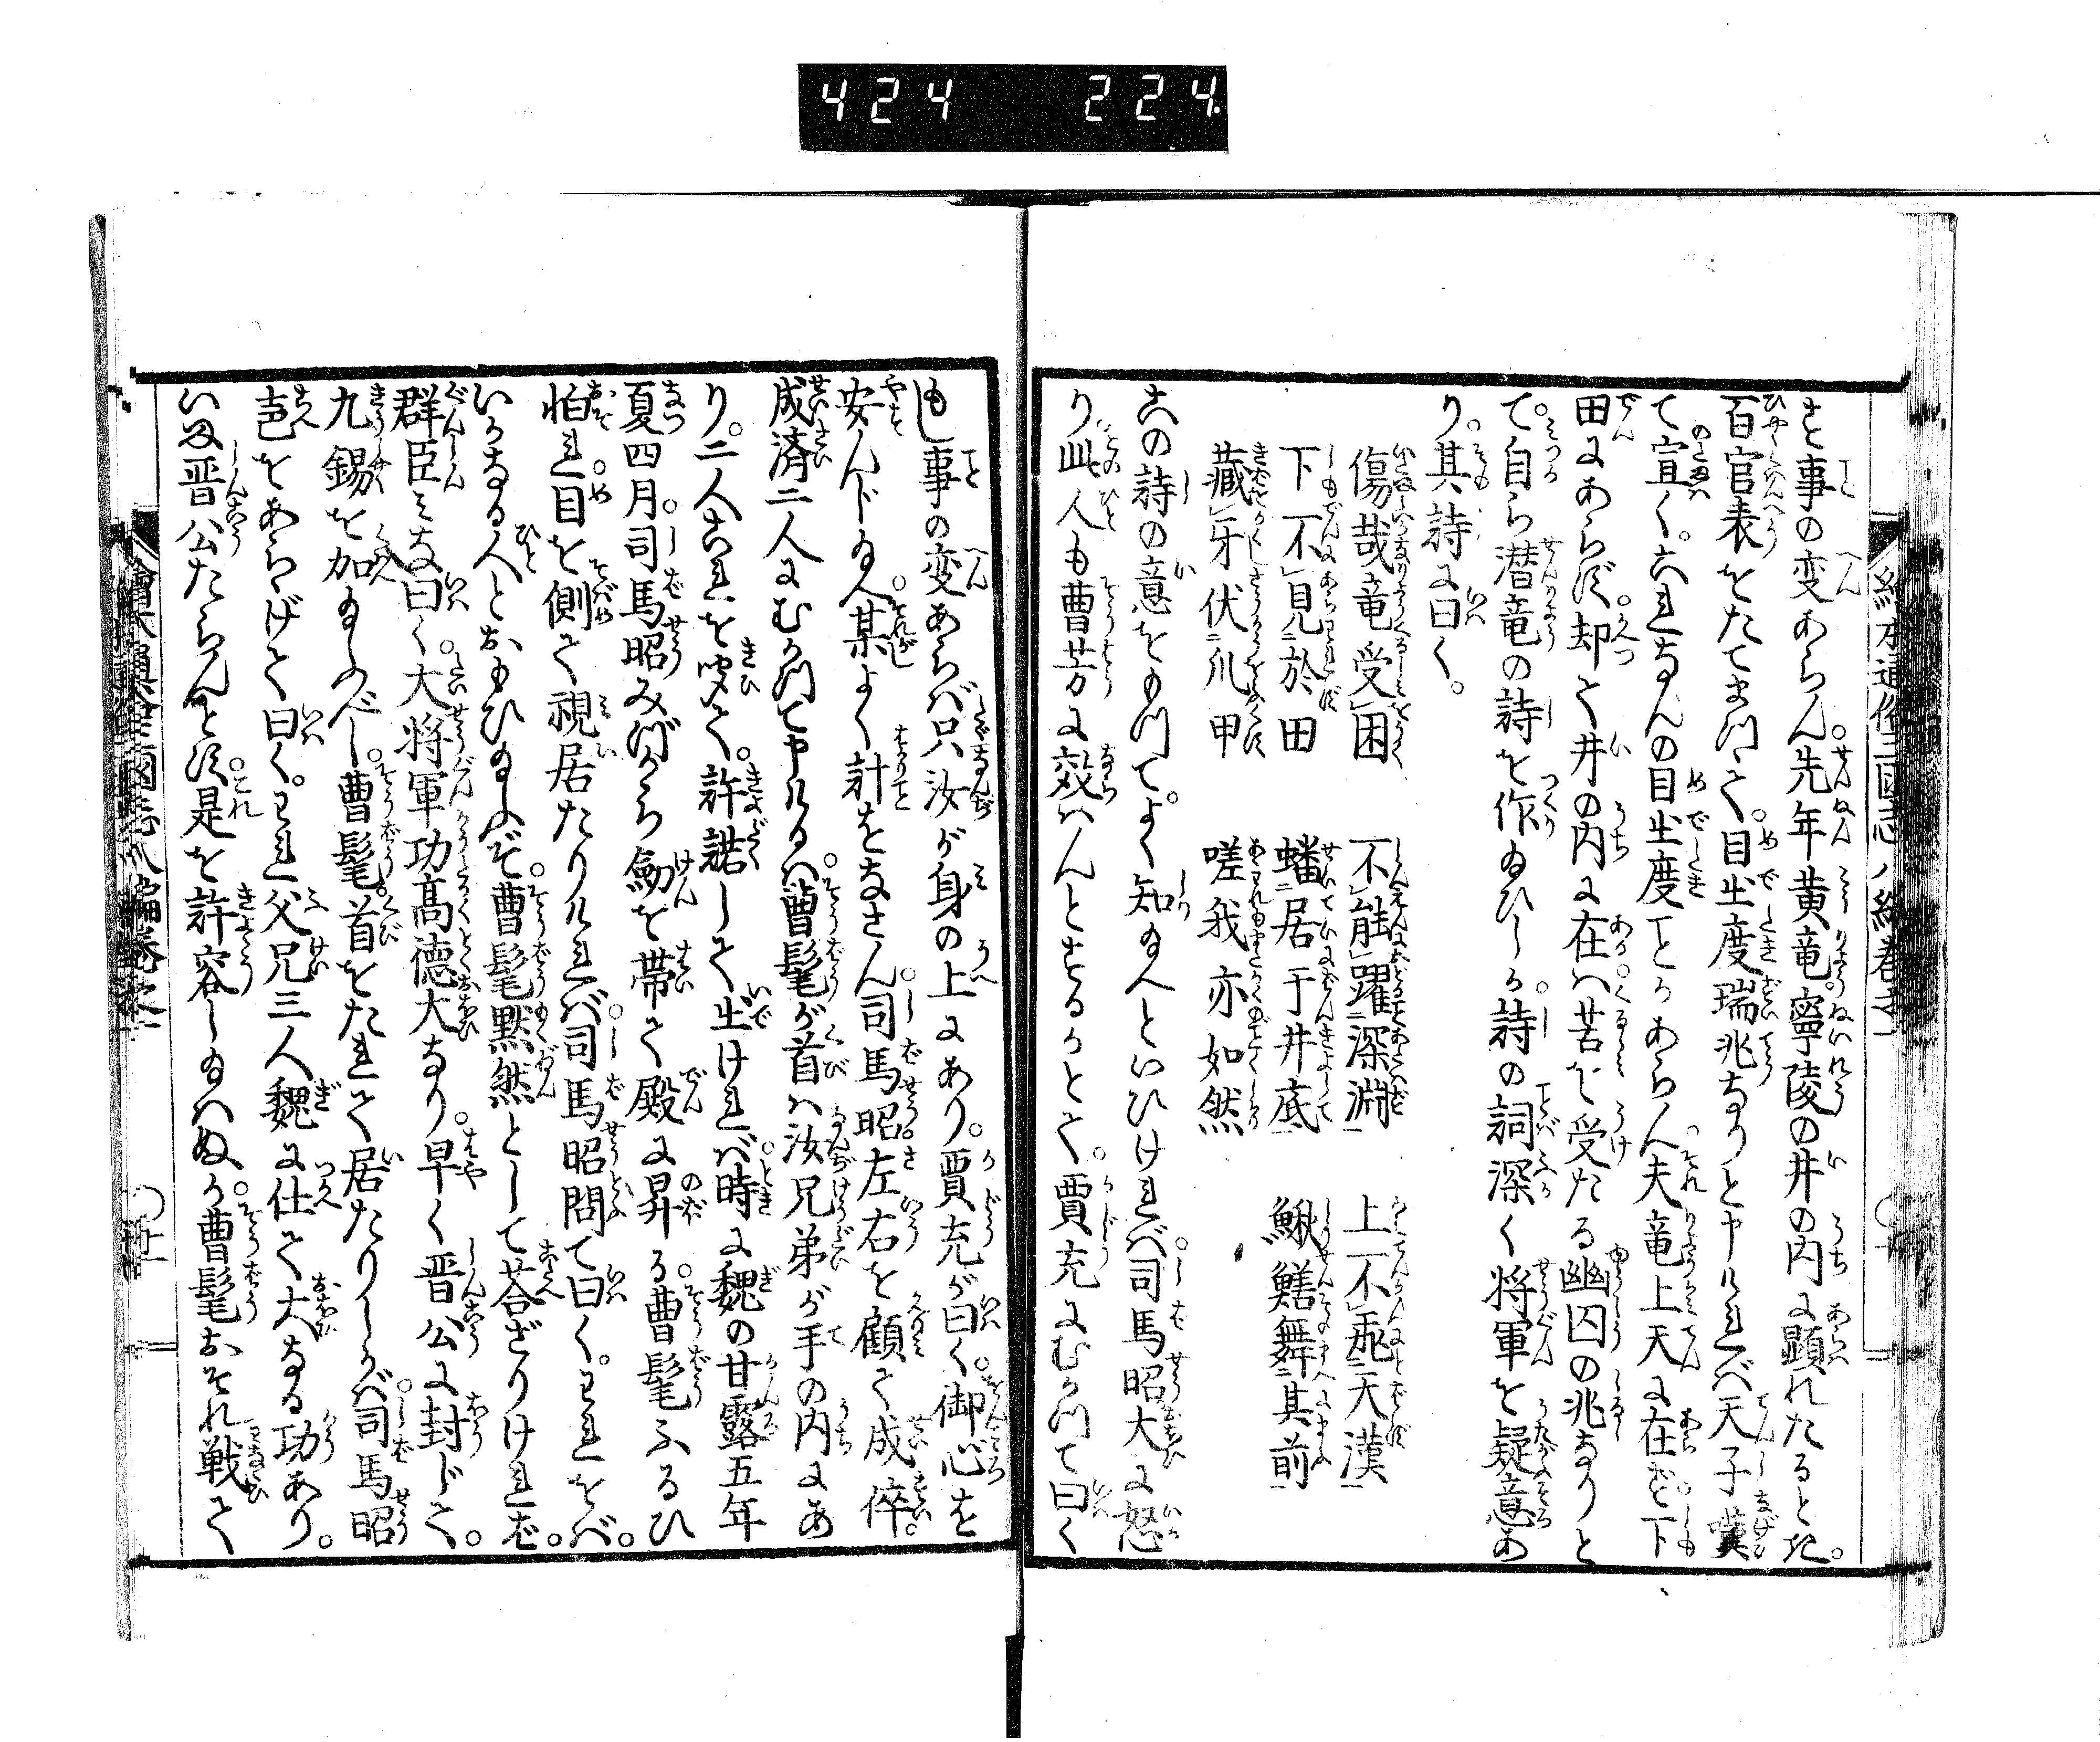 424 224
さと事の変あらん。先年黄竜寧陵の井の内に顕れたると記。
百官表をたてまつて。目出度瑞兆なりと申ければ天子嘆
て宣く。これなんの目出度ことかあらん夫竜上天に在ず下
田にあらず。却て井の内に在は。苦を受たる幽囚の兆なりと
て。自ら潜竜の詩を作ゐひしか。詩の詞深く将軍を疑意あ
り。其詩に曰く。
傷哉竜受困 不能躍深淵 上不飛天漢
下不見於田 蟠居于井底 鰍鱔舞其前
蔵牙伏爪甲 嗟我亦如然
この詩の意をもつて。よく知ゐへといひければ。司馬昭大に怒
り。此人も曹芳に效はんとするかとて。賈充にむかつて曰く
もし事の変あらば只汝が身の上にあり。賈充が曰く。御心を
安んじゐへ。某よく計をなさん。司馬昭。左右を顧て成倅。
成済二人にむかつて申けるは。曹髦が首は汝兄弟が手の内にあ
り。二人これを聞て。許諾して出ければ。時に魏の甘露五年
夏四月。司馬昭みづから劔を帯て殿に昇る。曹髦ふるひ
怕れ。目を側て視居たりければ。司馬昭問て曰く。われをべ。
いかなる人とおもひゐふぞ。曹髦黙然として荅ざりければ。
群臣みな曰く。大将軍功高徳大なり。早く晋公に封じて。
九錫を加ゐふべし。曹髦。首をたれて居たりしかば。司馬昭
色をあらげて曰く。われ父兄三人魏に仕て大なる功あり。
いま晋公たらんとす。是を許容しゐはぬか。曹髦おそれ戦て